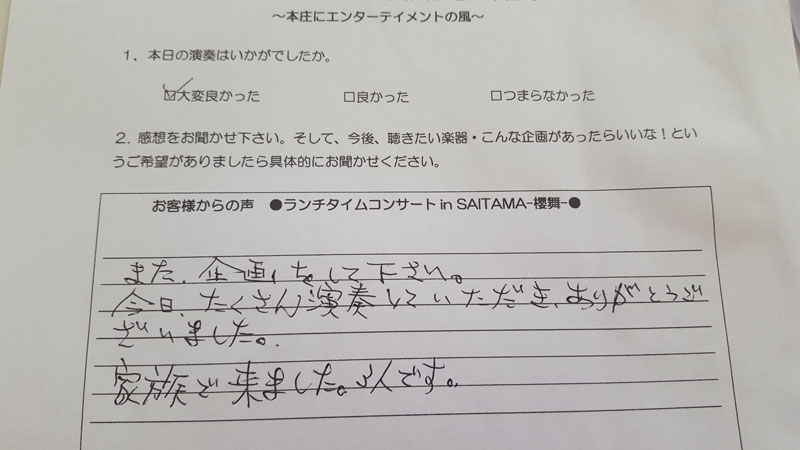 ～本庄にエンターテイメントの風～
１．本日の演奏はいかがでしたか。
☑大変良かった □良かった □つまらなかった
２．感想をお聞かせ下さい。そして、今後、聴きたい楽器・こんな企画があったらいいな！とい
うご希望がありましたら具体的にお聞かせください。
お客様からの声 ●ランチタイムコンサート in SAITAMA-櫻舞-●
また、企画をして下さい。
今日、たくさん演奏していただき、ありがとうご
ざいました。
家族で来ました。3人です。